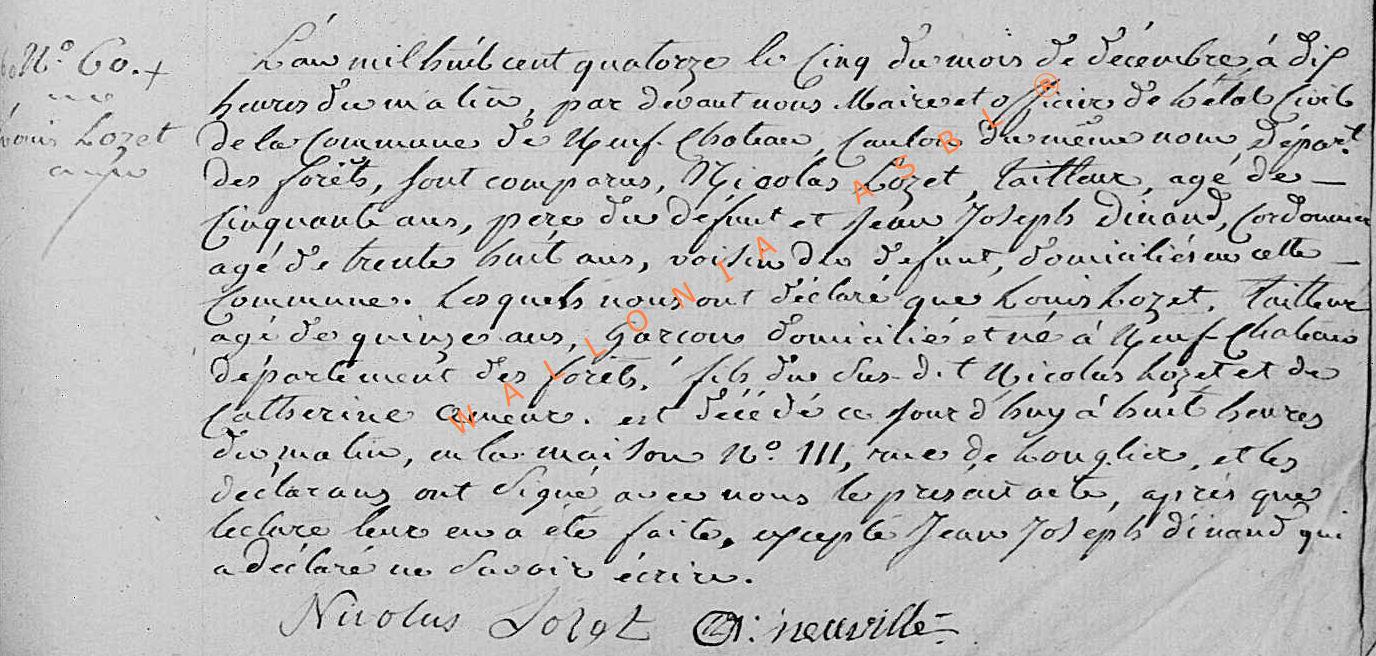 N.º 60. +
Louis Lozet
L'an mil huit cent quatorze le cinq du mois de décembre, à dix
heures du matin, par devant nous Maire et officier de l'état Civil
de la Commune de Neuf-Chateau, Canton du même nom, Départ.t
des forêts, sont comparus, Nicolas Lozet, tailleur, agé de —
Cinquante ans, pere du défunt et Jean Joseph Dinand, Cordonnier
agé de trente huit ans, voisin du défunt, domiciliés en cette —
Commune. Lesquels nous ont déclaré que Louis Lozet, Tailleur
agé de quinze ans, Garçon domicilié et né à Neuf-Chateau
département des forêts, fils du Sus-dit Nicolas Lozet et de
Catherine est décédé ce jour d'huy à huit heures
du matin, en la maison N.º 111, rue de Longlier, et les
déclarans ont Signé avec nous le présent acte, après que
lecture leur en a été faite, excepté Jean Joseph dinand qui
a déclaré ne Savoir écrire.
Nicolas Lozet neuville
WALLONIA ASBL ®